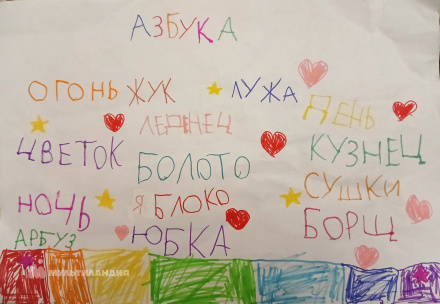 АЗБУКА
ОГОНЬ ЖУК ЛУЖА
ЛЕДЕНЕЦ ДЕНЬ
ЦВЕТОК БОЛОТО КУЗНЕЦ
НОЧЬ ЯБЛОКО СУШКИ
АРБУЗ ЮБКА БОРЩ
МУЛЬТИЛАНДИЯ